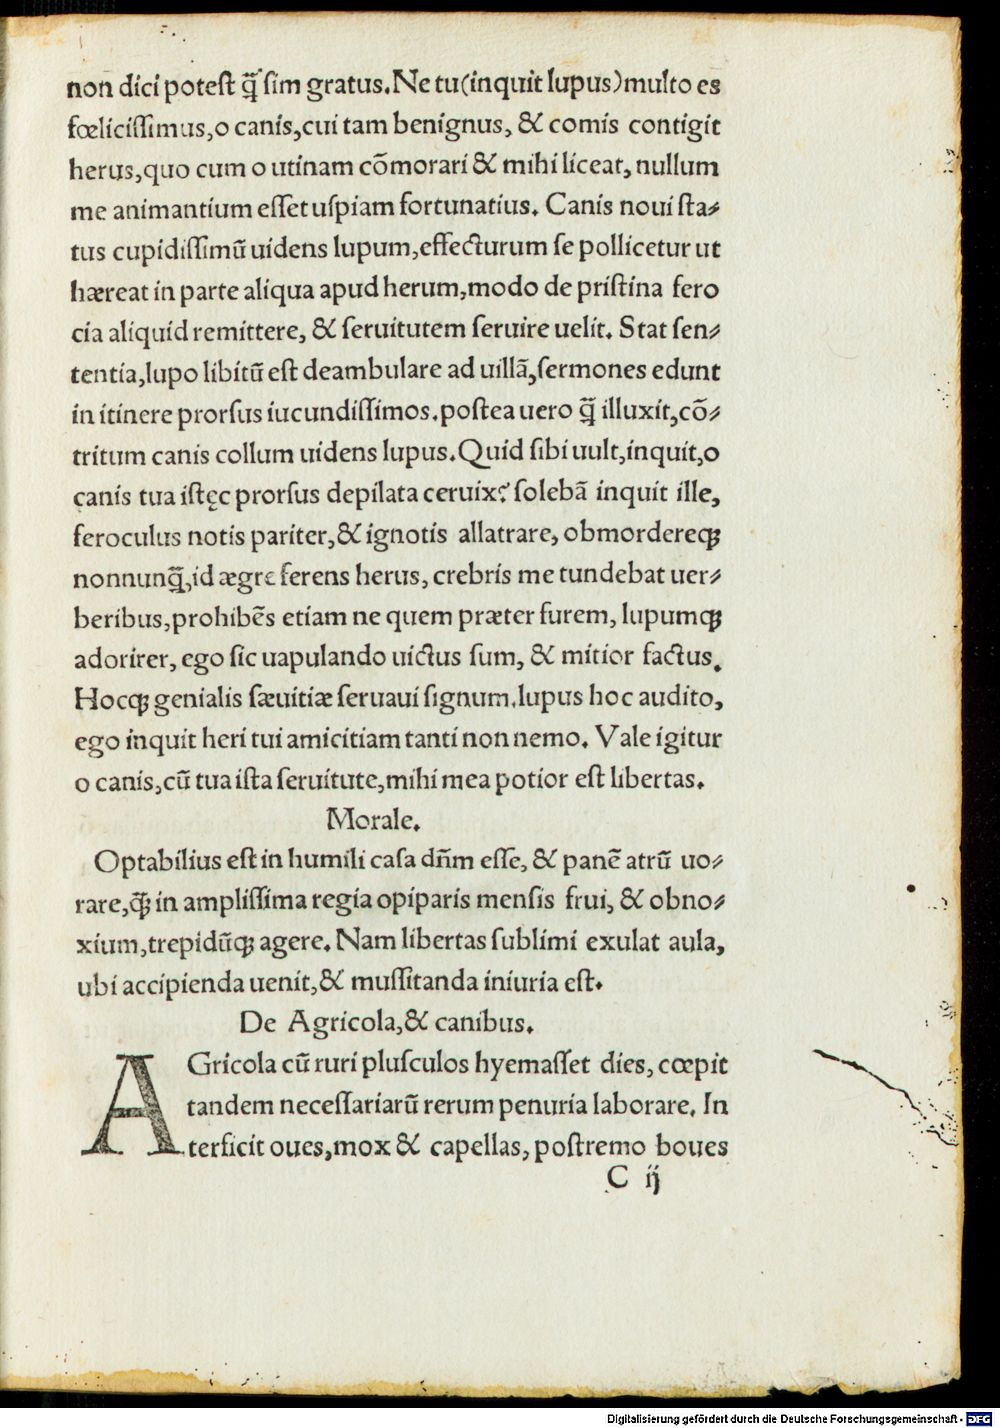 non dici potest q̃ sim gratus.Ne tu(inquit lupus)multo es
fœlicissimus,o canis,cui tam benignus, & comis contigit
herus,quo cum o utinam cõmorari & mihi liceat, nullum
me animantium esset uspiam fortunatius. Canis noui sta⸗
tus cupidissimũ uidens lupum,effecturum se pollicetur ut
hæreat in parte aliqua apud herum,modo de pristina fero
cia aliquid remittere, & seruitutem seruire uelit. Stat sen⸗
tentia,lupo libitũ est deambulare ad uillã,sermones edunt
in itinere prorsus iucundissimos.postea uero q̃ illuxit,cõ⸗
tritum canis collum uidens lupus.Quid sibi uult,inquit,o
canis tua istęc prorsus depilata ceruix? solebã inquit ille,
feroculus notis pariter,& ignotis allatrare, obmordereqꝫ
nonnunq̃,id ægre ferens herus, crebris me tundebat uer⸗
beribus,prohibẽs etiam ne quem præter furem, lupumqꝫ
adorirer, ego sic uapulando uictus sum, & mitior factus.
Hocqꝫ genialis sæuitiæ seruaui signum.lupus hoc audito,
ego inquit heri tui amicitiam tanti non nemo. Vale igitur
o canis,cũ tua ista seruitute,mihi mea potior est libertas.
Morale.
Optabilius est in humili casa dñm esse, & panẽ atrũ uo⸗
rare,q̃ꝫ in amplissima regia opiparis mensis frui, & obno⸗
xium,trepidũqꝫ agere. Nam libertas sublimi exulat aula,
ubi accipienda uenit,& mussitanda iniuria est.
De Agricola,& canibus.
AGricola cũ ruri plusculos hyemasset dies, cœpit
tandem necessariarũ rerum penuria laborare. In
terficit oues,mox & capellas, postremo boues
C ij
Digitalisierung gefördert durch die Deutsche Forschungsgemeinschaft - DFG